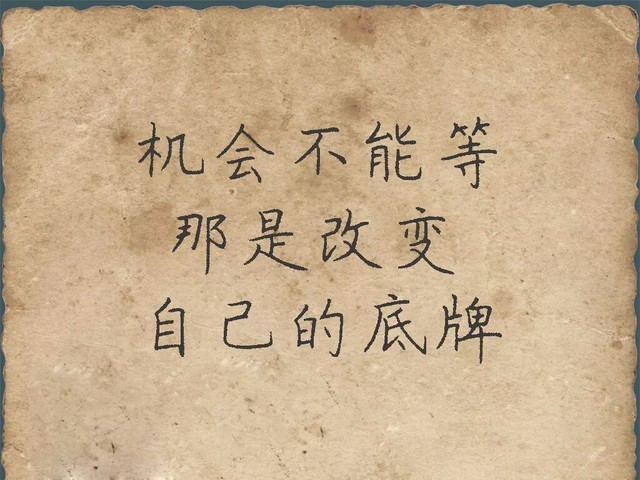 机会不能等
那是改变
自己的底牌